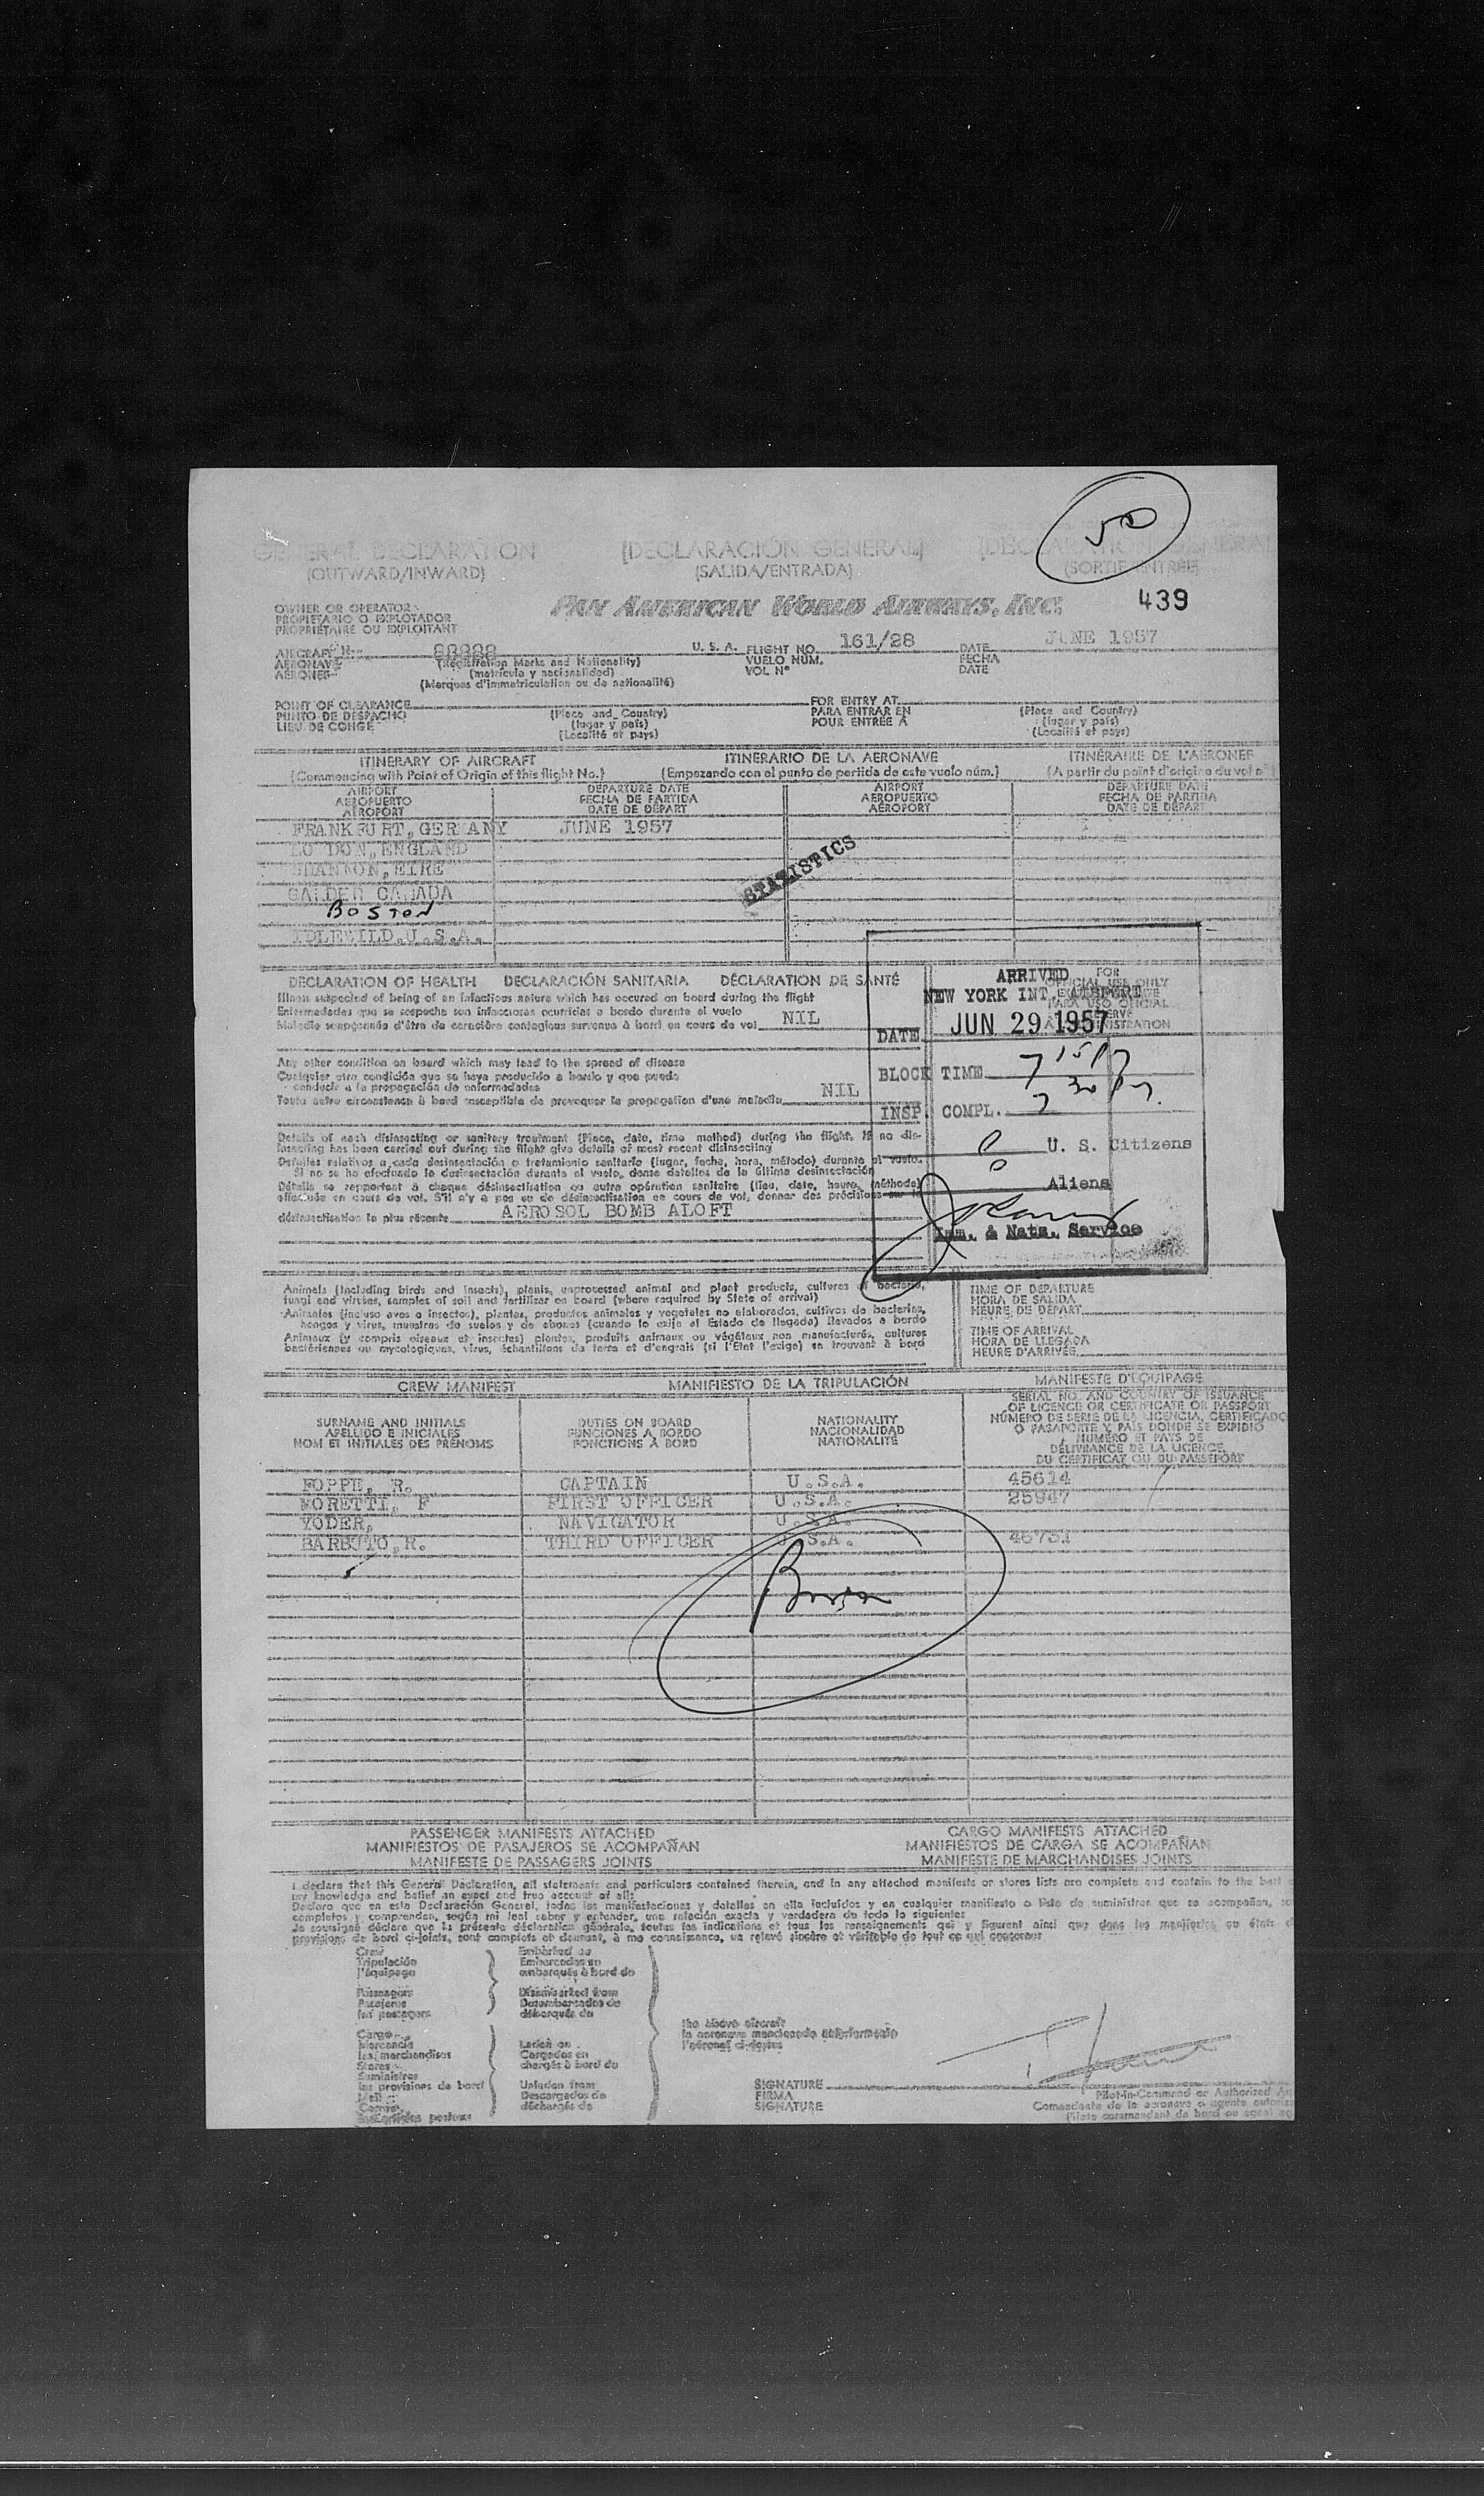 50
GENERAL DECLARATION (DECLARACIÓN GENERAL)
(OUTWARD/INWARD) (SALIDA/ENTRADA) (SORTIE/ENTRÉE)
OWNER OR OPERATOR PAN AMERICAN WORLD AIRWAYS, INC. 439
PROPIETARIO O EXPLOTADOR
PROPRIÉTAIRE OU EXPLOITANT
AIRCRAFT N U. S. A. FLIGHT NO. 161/28 DATE JUNE 1957
AERONAVE (Registration Marks and Nationality) VUELO NÚM. FECHA
AÉRONEF (matrícula y nacionalidad) VOL Nº DATE
(Marques d'immatriculation ou de nationalité)
POINT OF CLEARANCE FOR ENTRY AT
PUNTO DE DESPACHO (Place and Country) PARA ENTRAR EN (Place and Country)
LIEU DE CONGÉ (lugar y país) POUR ENTRÉE À (lugar y país)
(Localité et pays) (Localité et pays)
ITINERARY OF AIRCRAFT ITINERARIO DE LA AERONAVE ITINÉRAIRE DE L'AÉRONEF
(Commencing with Point of Origin of this flight No.) (Empezando con el punto de partida de este vuelo núm.) (A partir du point d'origine du vol n°
AIRPORT DEPARTURE DATE AIRPORT DEPARTURE DATE
AEROPUERTO FECHA DE PARTIDA AEROPUERTO FECHA DE PARTIDA
AÉROPORT DATE DE DÉPART AÉROPORT DATE DE DÉPART
FRANKFURT, GERMANY JUNE 1957
LONDON, ENGLAND
SHANNON, EIRE
STATISTICS
GANDER CANADA
BOSTON
IDLEWILD, U.S.A.
DECLARATION OF HEALTH DECLARACIÓN SANITARIA DÉCLARATION DE SANTÉ
Illness suspected of being of an infectious nature which has occured on board during the flight
Enfermedades que se sospecha son infecciosas ocurridas a bordo durante el vuelo
Maladie soupçonnée d'être de caractère contagieux survenue à bord en cours de vol NIL
Any other condition on board which may lead to the spread of disease
Cualquier otra condición que se haya producido a bordo y que pueda
conducir a la propagación de enfermedades
Toute autre circonstance à bord susceptible de provoquer la propagation d'une maladie NIL
Details of each disinsecting or sanitary treatment (Place, date, time method) during the flight. If no dis-
insecting has been carried out during the flight give details of most recent disinsecting
Detalles relativos a cada desinsectación o tratamiento sanitario (lugar, fecha, hora, método) durante el vuelo.
Si no se ha efectuado la desinsectación durante el vuelo, dense detalles de la última desinsectación
Détails se rapportant à chaque désinsectisation ou autre opération sanitaire (lieu, date, heure, méthode)
effectuée en cours de vol. S'il n'y a pas eu de désinsectisation en cours de vol, donner des précisions sur la
désinsectisation la plus récente AEROSOL BOMB ALOFT
FOR
OFFICIAL USE ONLY
PARA USO OFICIAL
ARRIVED
NEW YORK INT. AIRPORT
DATE JUN 29 1957
BLOCK TIME 7 15 P
INSP. COMPL. 7 30 P
0 U. S. Citizens
0 Aliens
Imm. & Natz. Service
Animals (including birds and insects), plants, unprocessed animal and plant products, cultures of bacteria,
fungi and viruses, samples of soil and fertilizer on board (where required by State of arrival)
Animales (incluso aves o insectos), plantas, productos animales y vegetales no elaborados, cultivos de bacterias,
hongos y virus, muestras de suelos y de abonos (cuando lo exija el Estado de llegada) llevados a bordo
Animaux (y compris oiseaux et insectes) plantes, produits animaux ou végétaux non manufacturés, cultures
bactériennes ou mycologiques, virus, échantillons de terre et d'engrais (si l'État l'exige) se trouvant à bord
TIME OF DEPARTURE
HORA DE SALIDA
HEURE DE DÉPART
TIME OF ARRIVAL
HORA DE LLEGADA
HEURE D'ARRIVÉE
CREW MANIFEST MANIFIESTO DE LA TRIPULACIÓN MANIFESTE D'ÉQUIPAGE
SURNAME AND INITIALS DUTIES ON BOARD NATIONALITY
APELLIDO E INICIALES FUNCIONES A BORDO NACIONALIDAD
NOM ET INITIALES DES PRÉNOMS FONCTIONS À BORD NATIONALITÉ
SERIAL NO. AND COUNTRY OF ISSUANCE
OF LICENCE OR CERTIFICATE OR PASSPORT
NÚMERO DE SERIE DE LA LICENCIA, CERTIFICADO
O PASAPORTE Y PAÍS DONDE SE EXPIDIÓ
NUMÉRO ET PAYS DE
DÉLIVRANCE DE LA LICENCE,
DU CERTIFICAT OU DU PASSEPORT
FOPPE, R. CAPTAIN U.S.A. 45614
MORETTI, F FIRST OFFICER U.S.A. 25947
YODER, NAVIGATOR U.S.A.
BARBUTO, R. THIRD OFFICER U.S.A. 46731
Boston
PASSENGER MANIFESTS ATTACHED CARGO MANIFESTS ATTACHED
MANIFIESTOS DE PASAJEROS SE ACOMPAÑAN MANIFIESTOS DE CARGA SE ACOMPAÑAN
MANIFESTE DE PASSAGERS JOINTS MANIFESTE DE MARCHANDISES JOINTS
I declare that this General Declaration, all statements and particulars contained therein, and in any attached manifests or stores lists are complete and contain to the best
my knowledge and belief an exact and true account of all:
Declaro que en esta Declaración General, todas las manifestaciones y detalles en ella incluidos y en cualquier manifiesto o lista de suministros que se acompañan,
completos y comprenden, según mi leal saber y entender, una relación exacta y verdadera de todo lo siguiente
Je soussigné déclare que la présente déclaration générale, toutes les indications et tous les renseignements qui y figurent ainsi que dans les manifestes ou états
provisions de bord ci-joints, sont complets et donnent, à ma connaissance, un relevé sincère et véritable de tout ce qui concerne
Crew Embarked on
Tripulación Embarcados en
l'équipage embarqués à bord de
Passengers Disembarked from
Pasajeros Desembarcados de
les passagers débarqués de
the above aircraft
la aeronave mencionada anteriormente
l'aéronef ci-dessus
Cargo
Mercancía Laden on
les marchandises Cargados en
Stores chargés à bord du
Suministros
les provisions de bord Unladen from
Mail Descargados de
Correo déchargés de
SIGNATURE
FIRMA Pilot-in-Command or Authorized
SIGNATURE Comandante de la aeronave o agente
Pilote commandant de bord ou agent